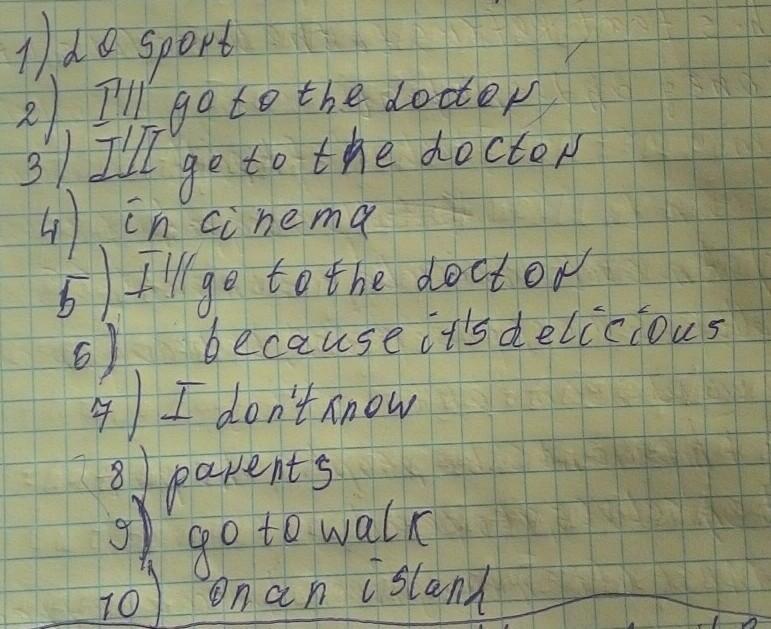 1) do sport
2) I'll go to the doctor
3) I'll go to the doctor
4) in cinema
5) I'll go to the doctor
6) because it's delicious
7) I don't know
8) parents
9) go to walk
10) on an island